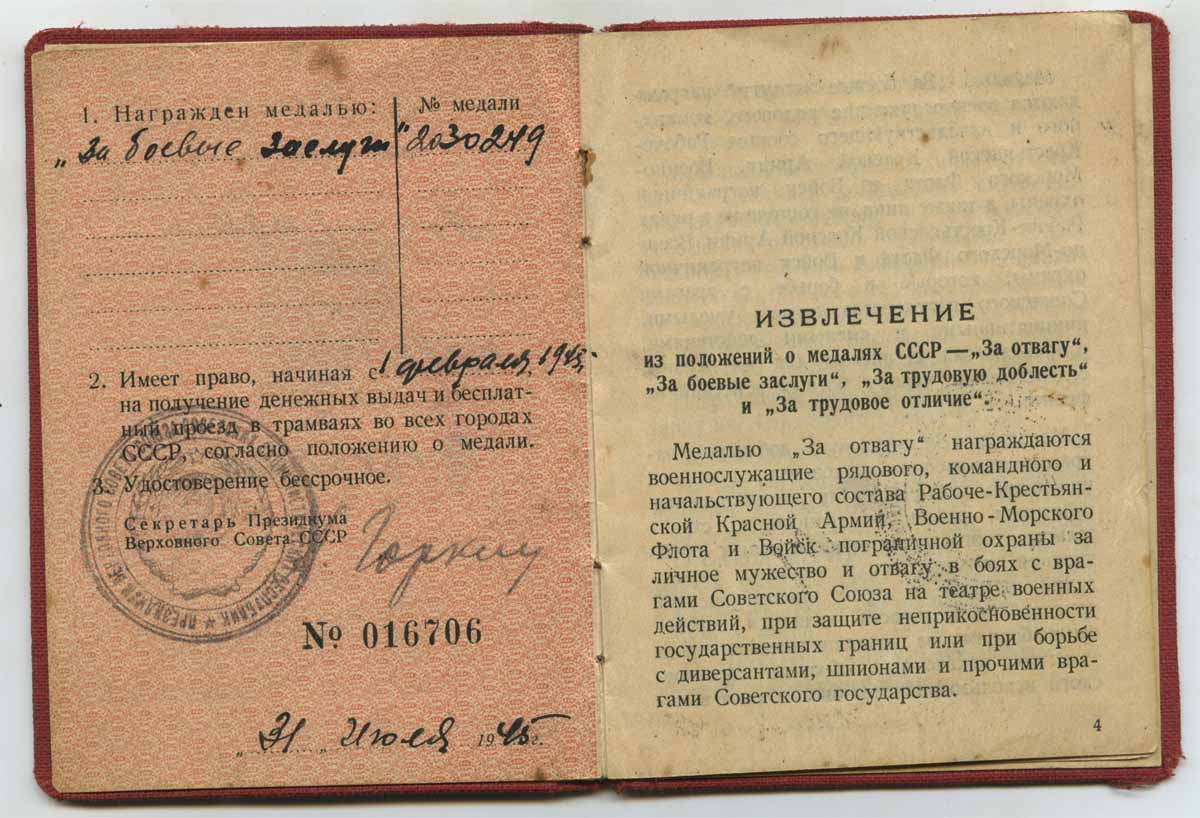 1. Награжден медалью: № медали
„За боевые заслуги" 2030249
2. Имеет право, начиная с 1 февраля 1945
на получение денежных выдач и бесплат-
ный проезд в трамваях во всех городах
СССР, согласно положению о медали.
3. Удостоверение бессрочное.
Секретарь Президиума
Верховного Совета СССР
Горкин
№ 016706
„31" Июля 1945 г.
ИЗВЛЕЧЕНИЕ
из положений о медалях СССР — „За отвагу",
„За боевые заслуги", „За трудовую доблесть"
и „За трудовое отличие".
Медалью „За отвагу" награждаются
военнослужащие рядового, командного и
начальствующего состава Рабоче-Крестьян-
ской Красной Армии, Военно-Морского
Флота и Войск пограничной охраны за
личное мужество и отвагу в боях с вра-
гами Советского Союза на театре военных
действий, при защите неприкосновенности
государственных границ или при борьбе
с диверсантами, шпионами и прочими вра-
гами Советского государства.
4